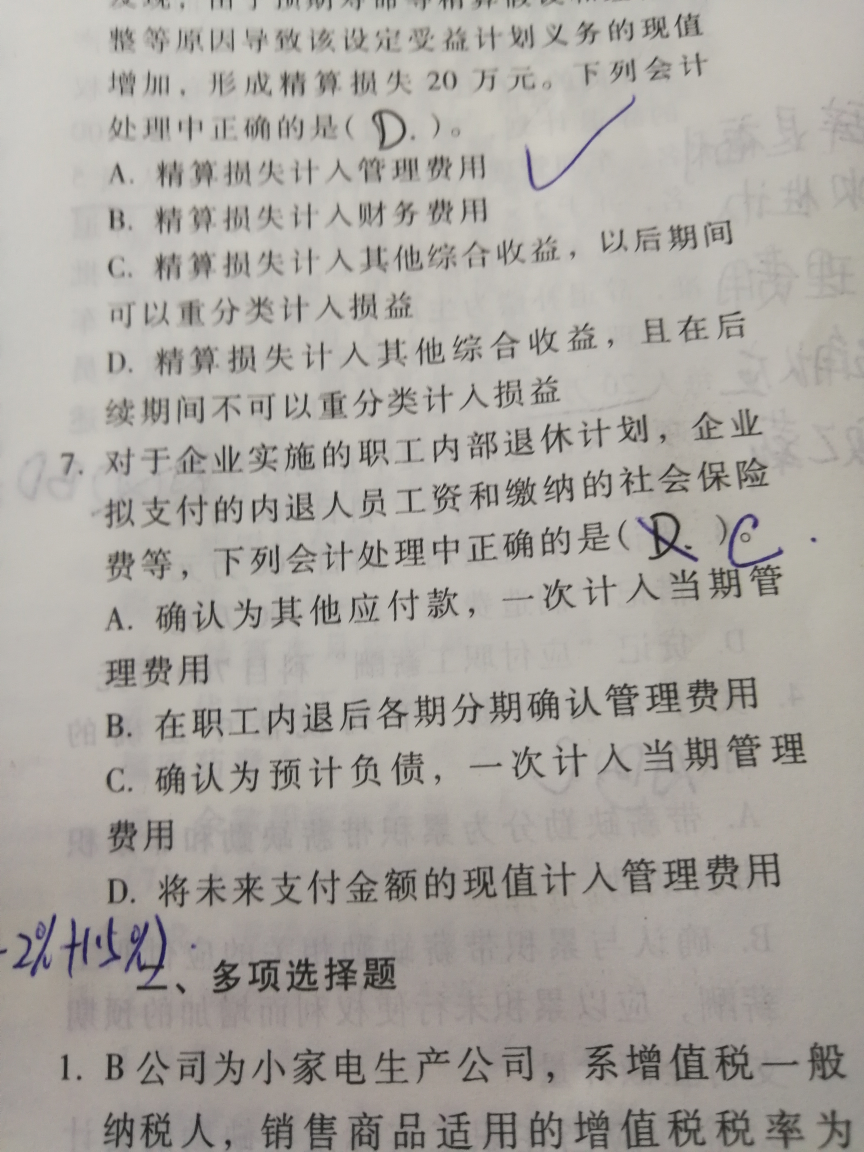 整等原因导致该设定受益计划义务的现值
增加，形成精算损失 20 万元。下列会计
处理中正确的是( D. )。
A. 精算损失计入管理费用
B. 精算损失计入财务费用
C. 精算损失计入其他综合收益，以后期间
可以重分类计入损益
D. 精算损失计入其他综合收益，且在后
续期间不可以重分类计入损益
7. 对于企业实施的职工内部退休计划，企业
拟支付的内退人员工资和缴纳的社会保险
费等，下列会计处理中正确的是( D. )。C
A. 确认为其他应付款，一次计入当期管
理费用
B. 在职工内退后各期分期确认管理费用
C. 确认为预计负债，一次计入当期管理
费用
D. 将未来支付金额的现值计入管理费用
-2%+1.5%)
二、多项选择题
1. B 公司为小家电生产公司，系增值税一般
纳税人，销售商品适用的增值税税率为